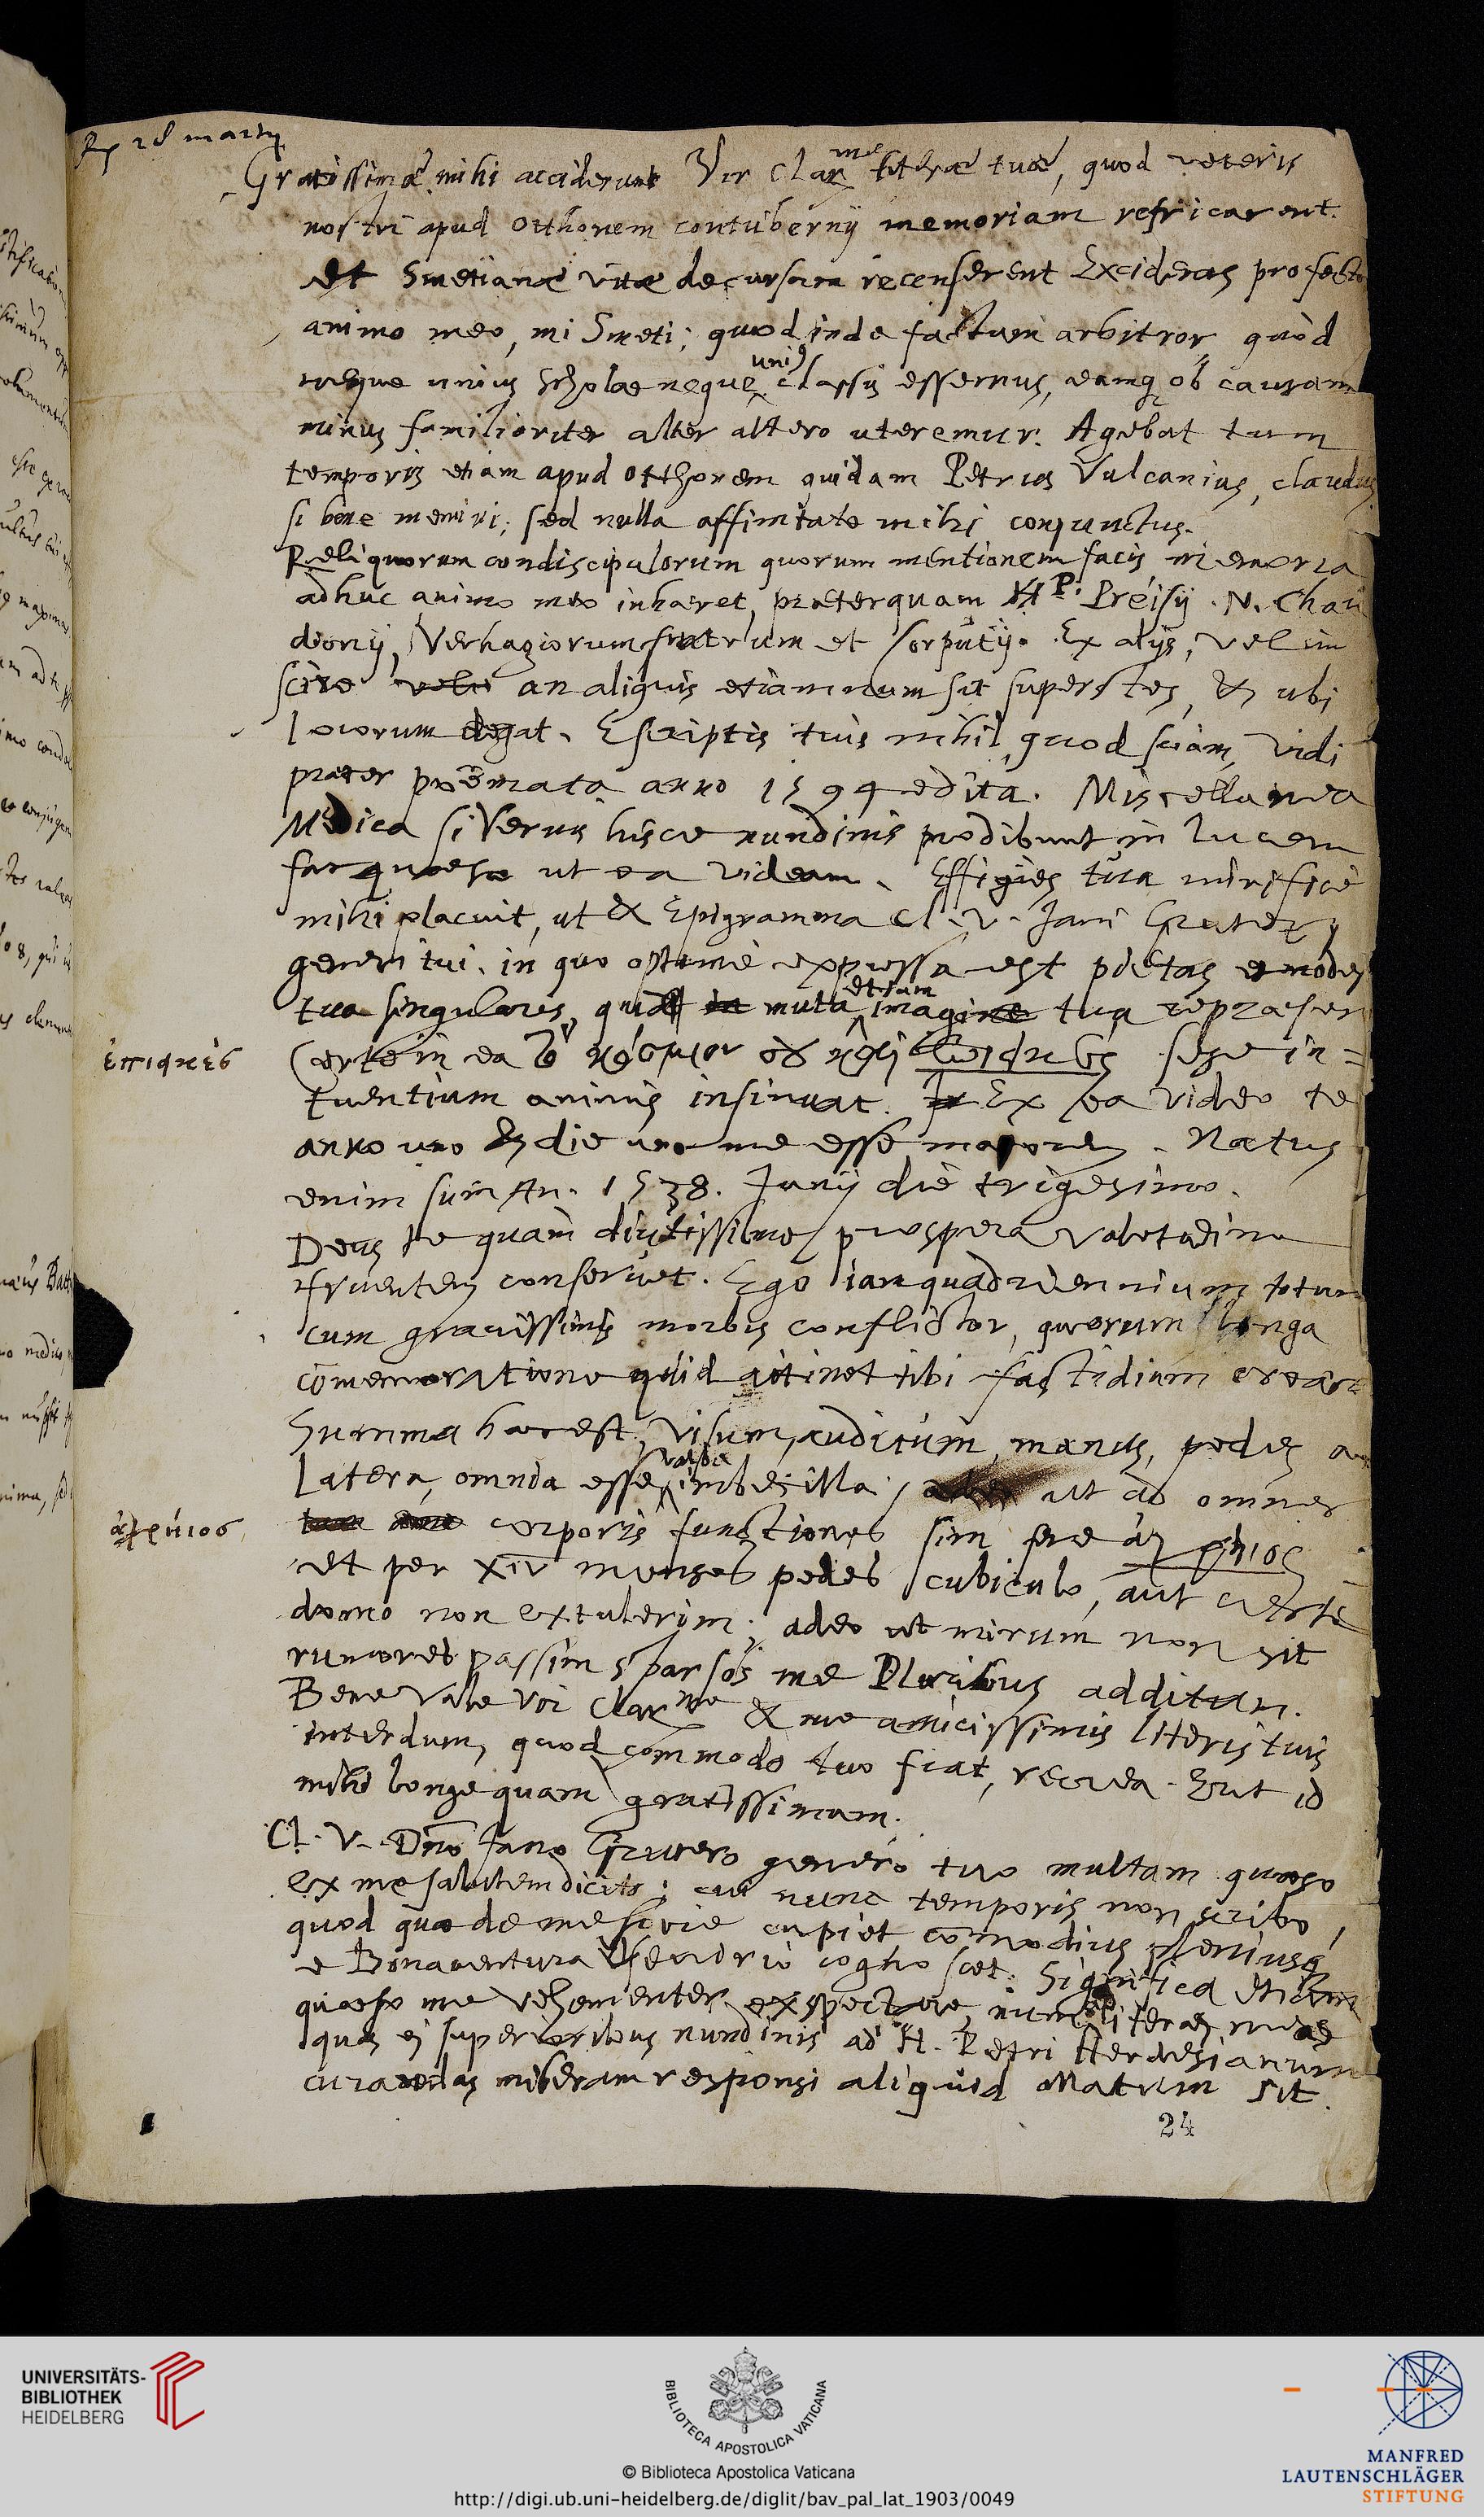 Gratissimæ mihi acciderunt Vir Clarme litteræ tuæ, quod veteris
nostri apud Otthonem contubernij memoriam refricarent.
et Smetianæ vitæ decursum recenserent Excideras profecto
animo meo, mi Smeti; quod inde factum arbitror, quòd
neque unius Scholae neque unius classis essemus, eamq ob causam
minus familiariter alter altero uteremur. Agebat tum
temporis etiam apud Otthonem quidam Petrus Vulcanius, claudus
si bene memini; sed nulla affinitate mihi conjunctus.
Reliquorum condiscipulorum quorum mentionem facis memoria
adhuc animo meo inhaeret, praeterquam P. Preisij. N. Chau
dionij, Verhagiorum fratrum et Sorputij. Ex alijs, velim
scire an aliquis etiamnum sit superstes, & ubi
locorum degat. E scriptis tuis nihil, quod sciam, vidi
praeter poëmata anno 1594 edita. Miscellanea
Medica si Vernis hisce nundinis prodibunt in lucem
fac quaeso ut ea videam. Effigies tua mirificè
mihi placuit, ut & Epigramma Cl. V. Jani Gruteri
generi tui. in quo optimè expressa est pietas
tua singularis, muta etiam tua repraesen
ἐπιεικὲς
Certe in ea sese in=
tuentium animis insinuat. Ex ea video te
anno uno & die uno me esse majorem. Natus
enim sum An. 1538. Junij die trigesimo.
Deus te quam diutissime prospera valetudine
fruentem conservet. Ego iam quadriennium totum
cum gravissimis morbis conflictor, quorum longa
cōmemoratione quid attinet tibi fastidium creare
Summa haec est, visum, auditum, manus, pedes
latera, omnia esse valde imbecilla; ut ad omnes
ἀχρήιος
corporis functiones sim fere ἀχρήιος
et per xiv menses pedes cubiculo, aut certè
domo non extulerim; adeo ut mirum non sit
rumores passim sparsos me Pluribus additum.
Bene Vale Vir Clarme & me amicissimis literis tuis
interdum, quod commodo tuo fiat, recrea. Erit id
mihi longe quam gratissimum.
Cl. V. Dno Jano Grutero genero tuo multam quaeso
ex me salutem dicito; cui nunc temporis non scribo,
quod quae de me scire cupiet cōmodius pleniusq
e Bonaventura cognoscet. Significa etiam
quaeso me vehementer exspectare, num ad literas meas
quas ei superioribus nundinis ad H. Petri
curandas miseram responsi aliquid allatum sit.
24
UNIVERSITÄTS-
BIBLIOTHEK
HEIDELBERG
BIBLIOTECA APOSTOLICA VATICANA
© Biblioteca Apostolica Vaticana
http://digi.ub.uni-heidelberg.de/diglit/bav_pal_lat_1903/0049
MANFRED
LAUTENSCHLÄGER
STIFTUNG